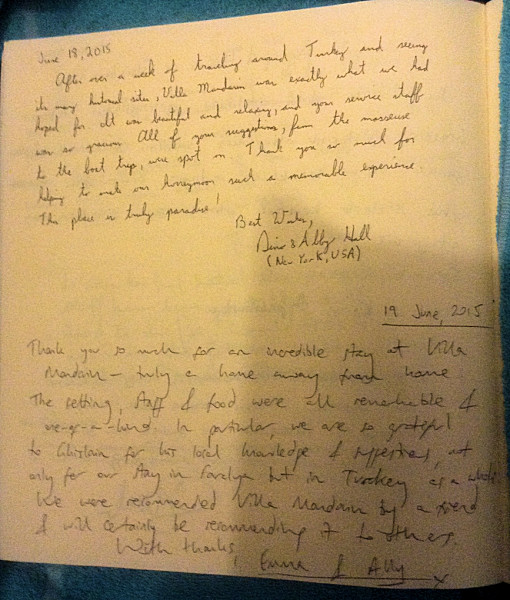 June 18, 2015
After over a week of traveling around Turkey and seeing
its many historical sites, Villa Mandarin was exactly what we had
hoped for. It was beautiful and relaxing, and your service staff
was so gracious. All of your suggestions, from the masseuse
to the boat trips, were spot on. Thank you so much for
helping to make our honeymoon such a memorable experience.
This place is truly paradise!
Best Wishes,
& Ally Hall
(New York, USA)
19 June, 2015
Thank you so much for an incredible stay at Villa
Mandarin - truly a home away from home
The setting, staff & food were all remarkable &
one-of-a-kind. In particular, we are so grateful
to Ghislain for his local knowledge & suggestions, not
only for our stay in Faralya but in Turkey as a whole.
We were recommended Villa Mandarin by a friend
& will certainly be recommending it to others.
With thanks,
Emma & Ally x